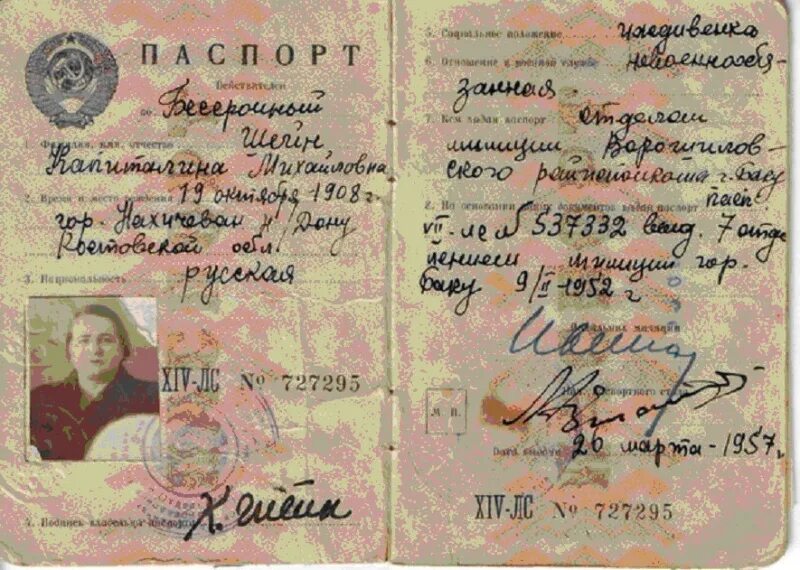 ПАСПОРТ
Действителен
по Бессрочный
1. Фамилия, имя, отчество Шейн
Капиталина Михайловна
2. Время и место рождения 19 октября 1908 г.
гор. Нахичеван н/Дону
Ростовской обл.
3. Национальность русская
XIV-ЛС № 727295
4. Подпись владельца паспорта К. Шейн
5. Социальное положение иждивенка
6. Отношение к военной службе невоеннообя-
занная
7. Кем выдан паспорт Отделом
милиции Ворошилов-
ского райисполкома г. Баку
8. На основании каких документов выдан паспорт пасп
VII-ЛЕ № 537332 выд. 7 отде
лением милиции гор.
Баку 9/II-1952 г
Начальник милиции
Нач. паспортного стола
М П.
Дата выдачи 26 марта-1957г
XIV-ЛС № 727295